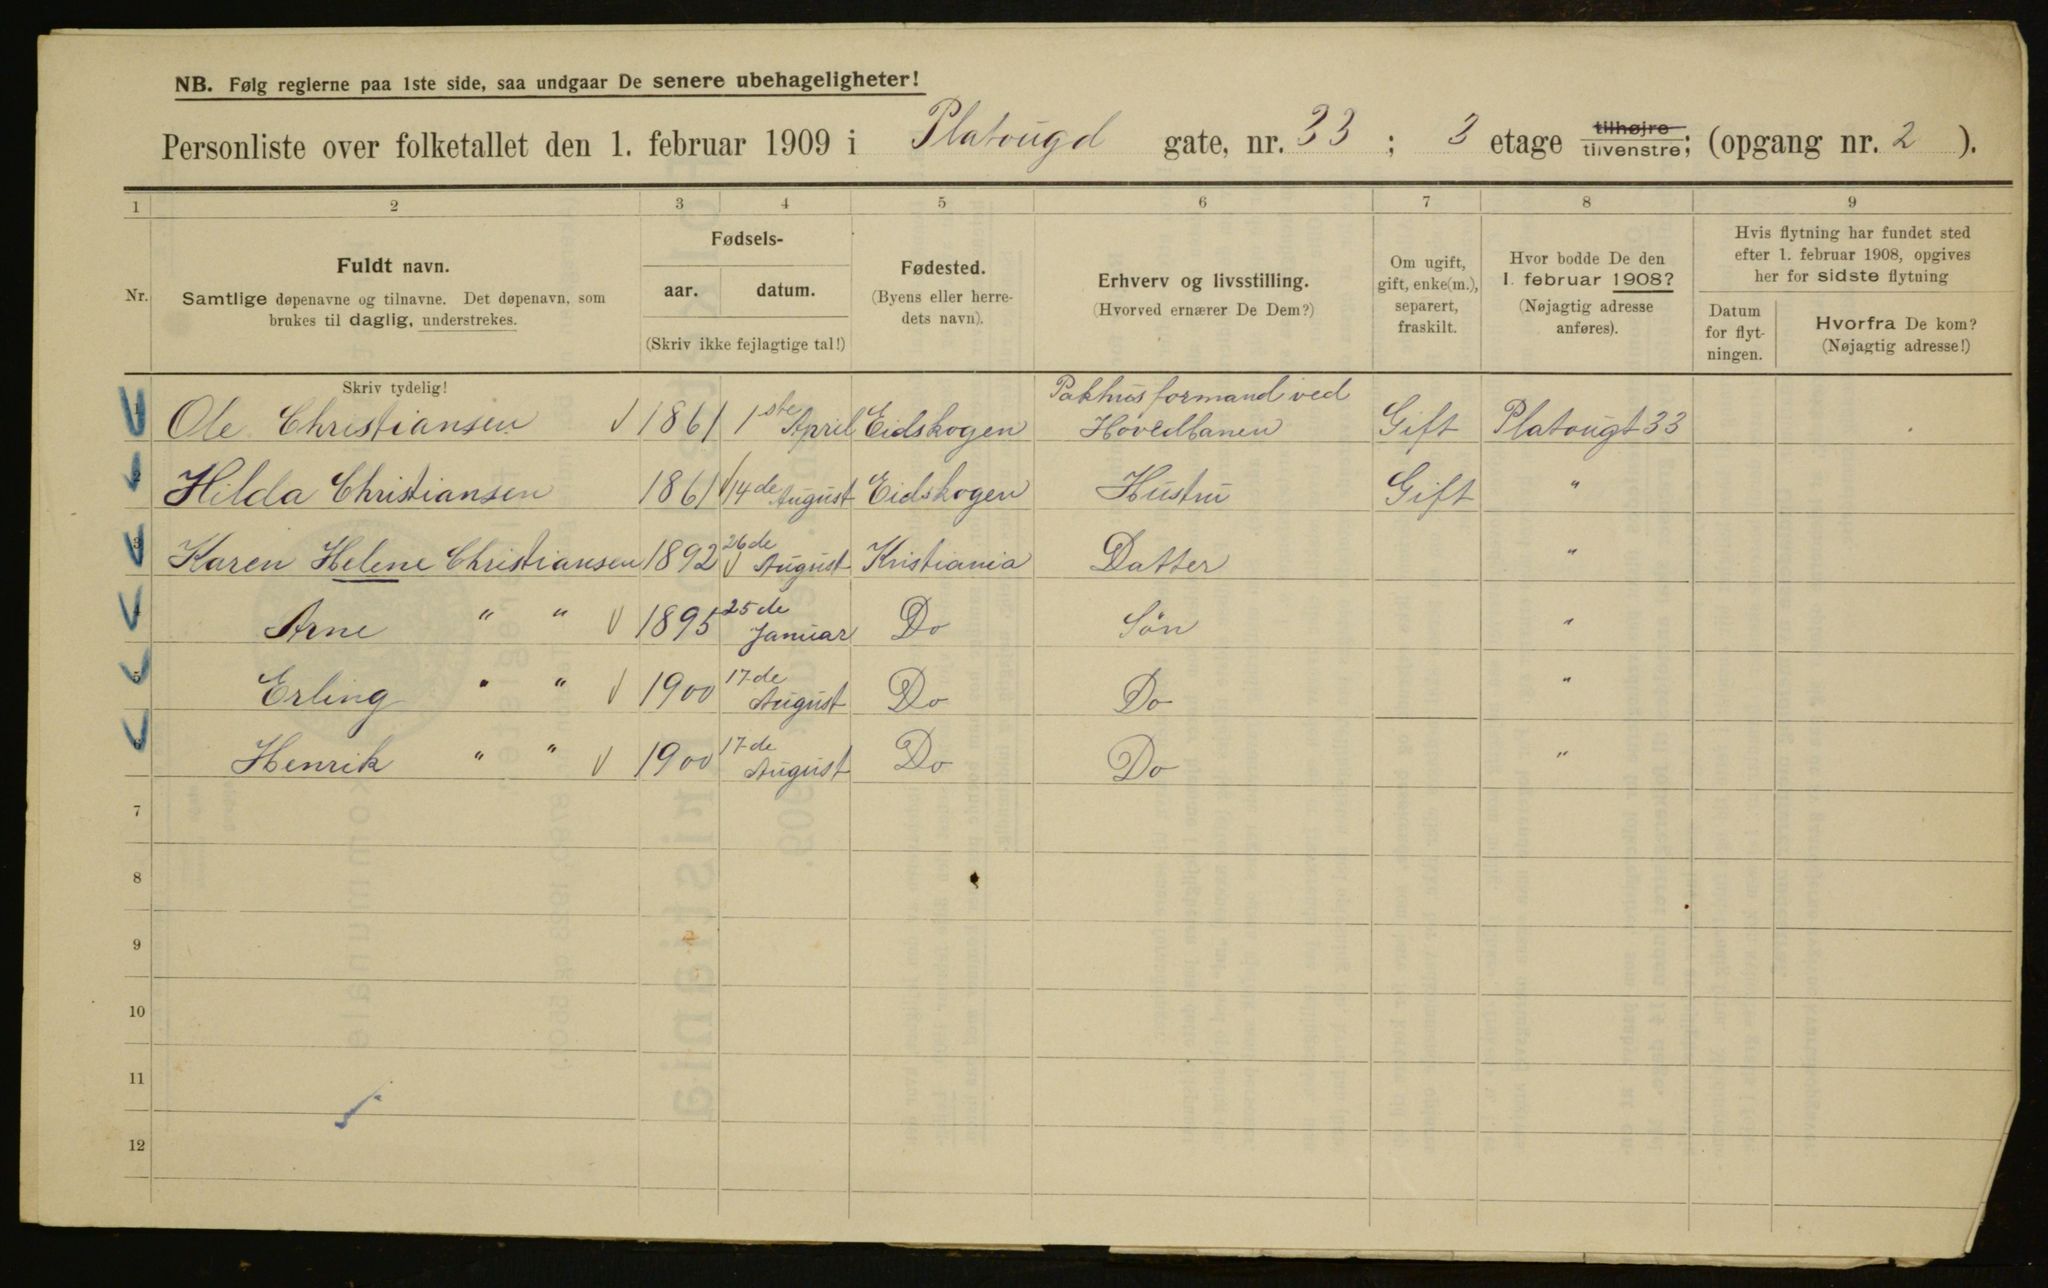 NB. Følg reglerne paa 1ste side, saa undgaar De senere ubehageligheter!
Personliste over folketallet den 1. februar 1909 i Platougd gate, nr. 33 ; 3 etage tilhøjre tilvenstre; (opgang nr. 2 ).
1 2 3 4 5 6 7 8 9
Nr.
Fuldt navn.
Samtlige døpenavne og tilnavne. Det døpenavn, som
brukes til daglig, understrekes.
Fødsels-
aar. datum.
(Skriv ikke fejlagtige tal!)
Fødested.
(Byens eller herre-
dets navn).
Erhverv og livsstilling.
(Hvorved ernærer De Dem?)
Om ugift,
gift, enke(m.),
separert,
fraskilt.
Hvor bodde De den
1. februar 1908?
(Nøjagtig adresse
anføres).
Hvis flytning har fundet sted
efter 1. februar 1908, opgives
her for sidste flytning
Datum
for flyt-
ningen.
Hvorfra De kom?
(Nøjagtig adresse!)
Skriv tydelig!
1 Ole Christiansen 1861 1ste April Eidskogen Pakhusformand ved Hovedbanen Gift Platougt 33
2 Hilda Christiansen 1861 14de August Eidskogen Hustru Gift "
3 Karen Helene Christiansen 1892 26de August Kristiania Datter "
4 Arne " " 1895 25de Januar Do Søn "
5 Erling " " 1900 17de August Do Do "
6 Henrik " " 1900 17de August Do Do "
7
8
9
10
11
12